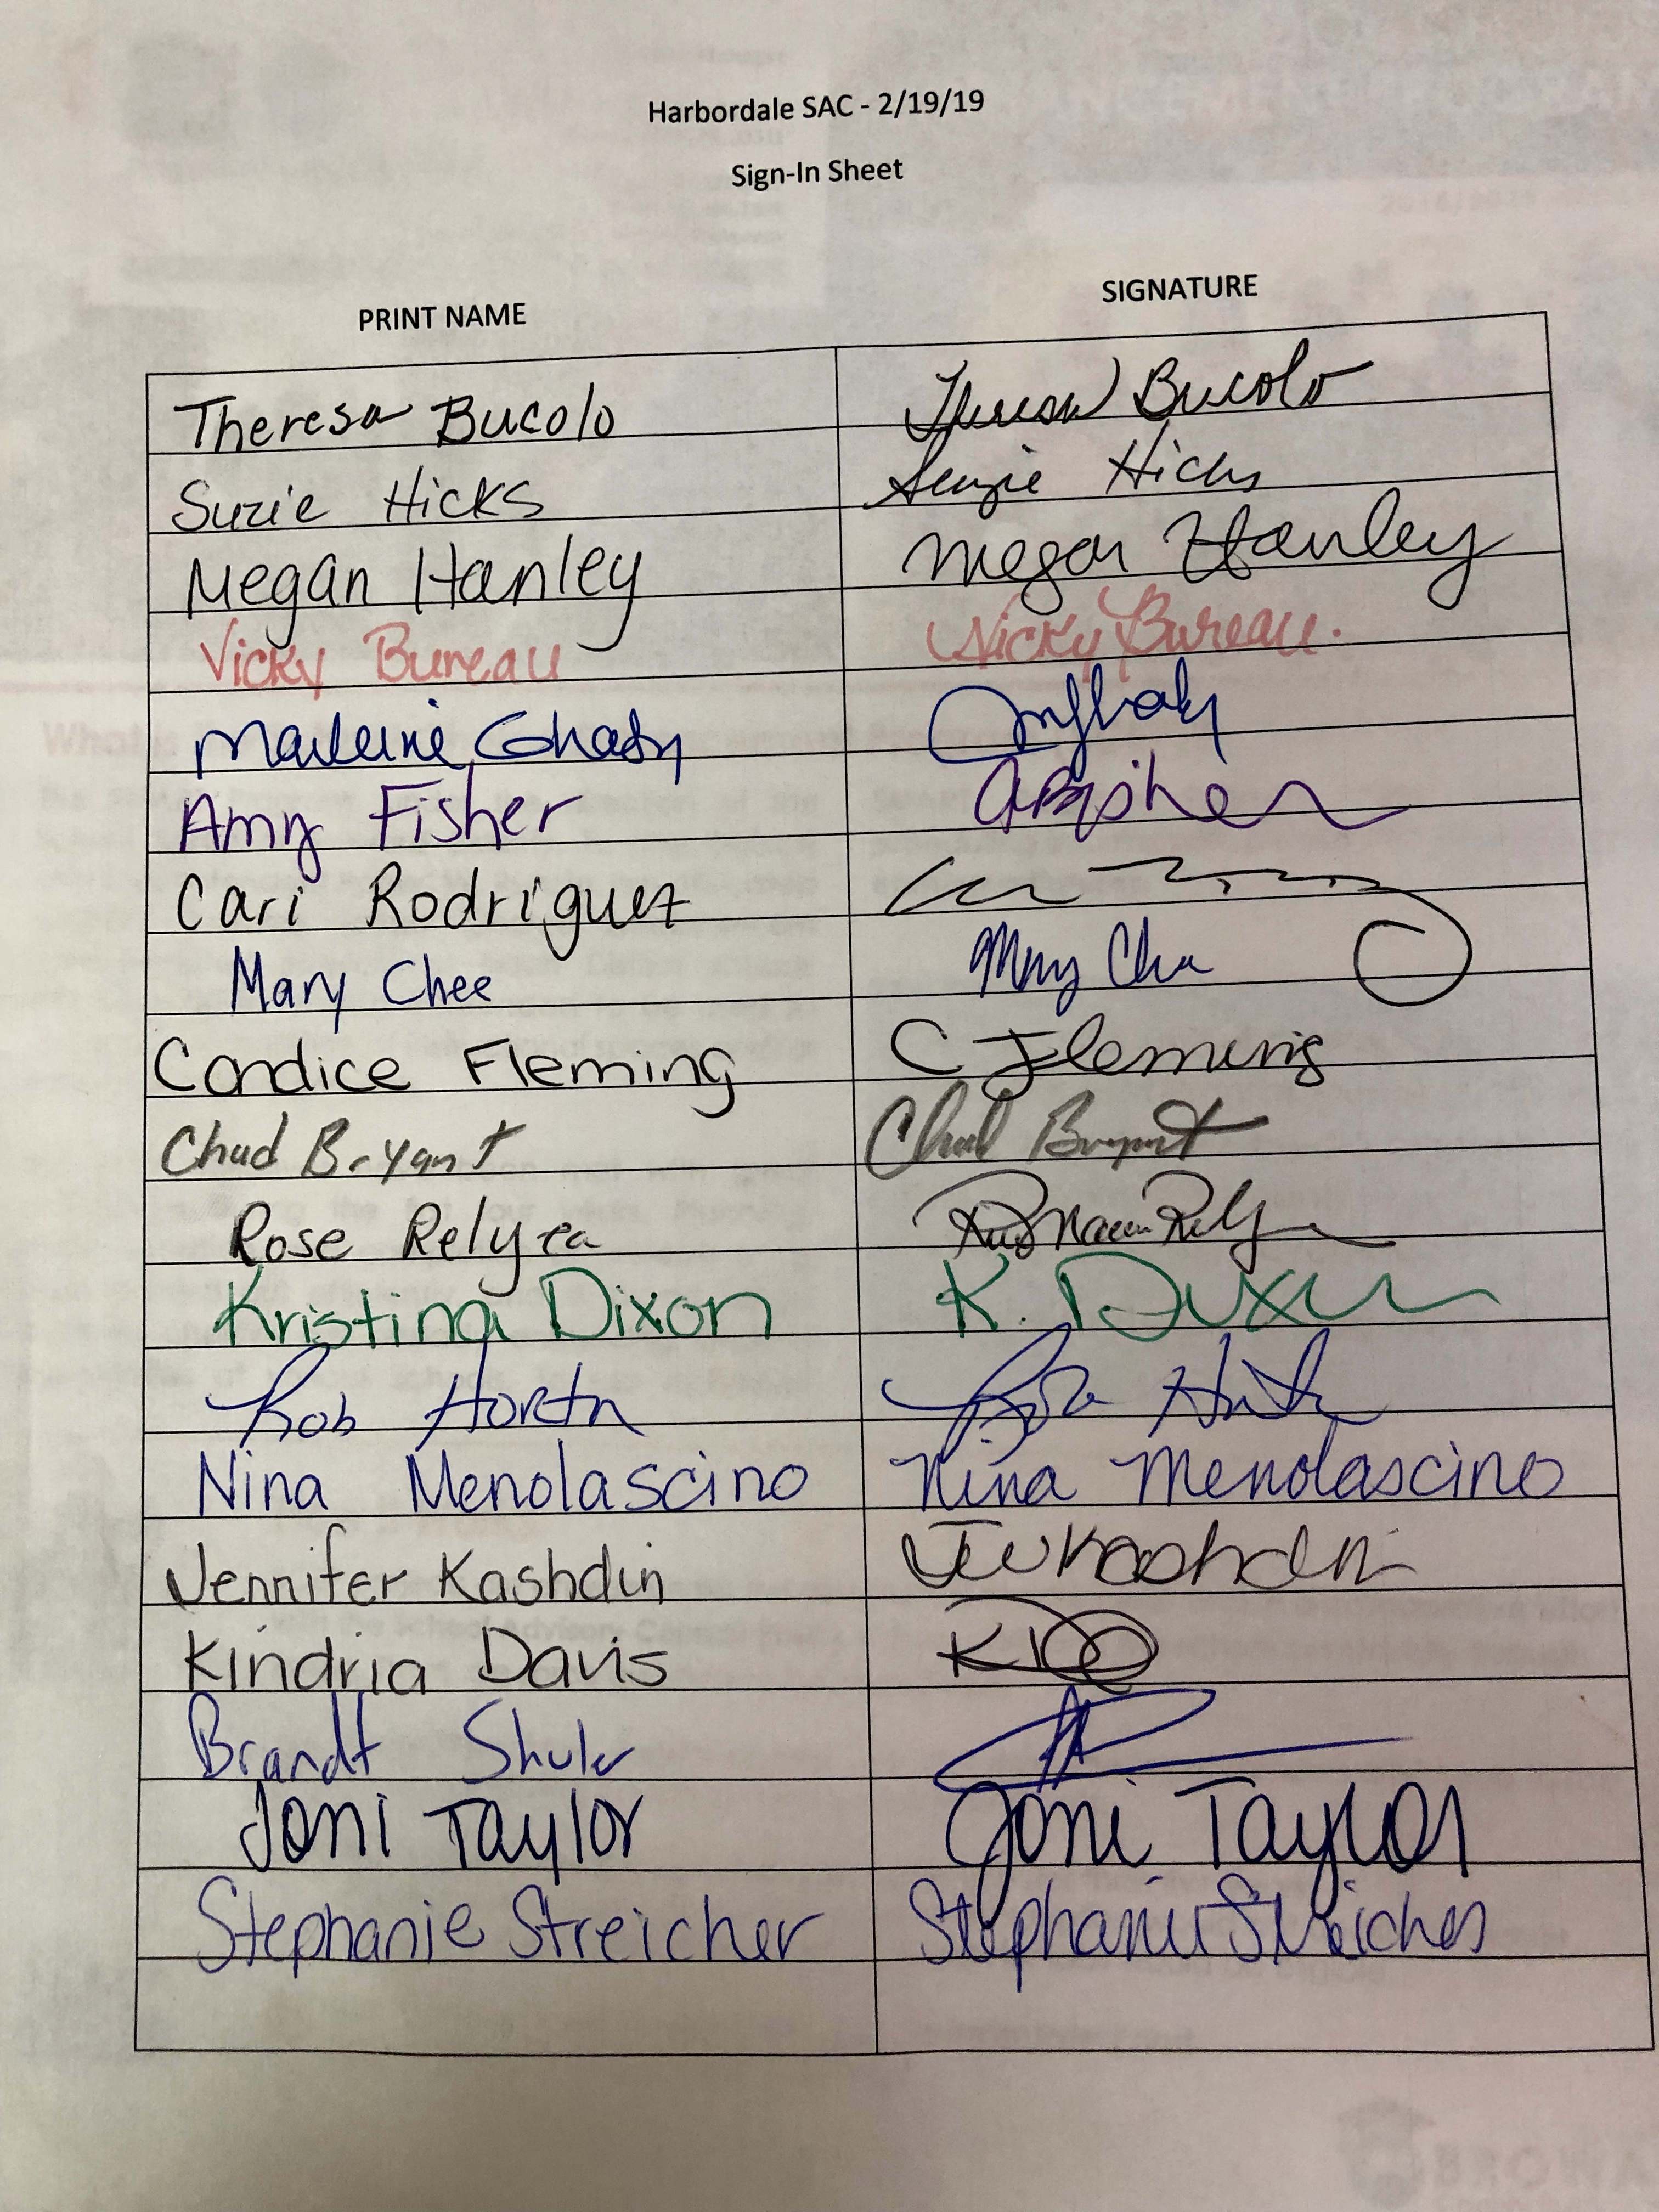 Harbordale SAC - 2/19/19
Sign-In Sheet
PRINT NAME SIGNATURE
Theresa Bucolo Theresa Bucolo
Suzie Hicks Suzie Hicks
Megan Hanley Megan Hanley
Vicky Bureau Vicky Bureau.
Ghaby
Amy Fisher
Cari Rodriguez
Mary Chee Mary Chee
Candice Fleming C Fleming
Chad Bryant Chad Bryant
Rose Relyea
Kristina Dixon K. Dixon
Rob Horth
Nina Menolascino Nina Menolascino
Jennifer Kashdin
Kindria Davis
Brandt Shuler
Joni Taylor Joni Taylor
Stephanie Streicher Stephanie Streicher